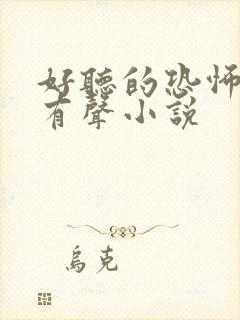 好聽的恐怖
有聲小說
烏克